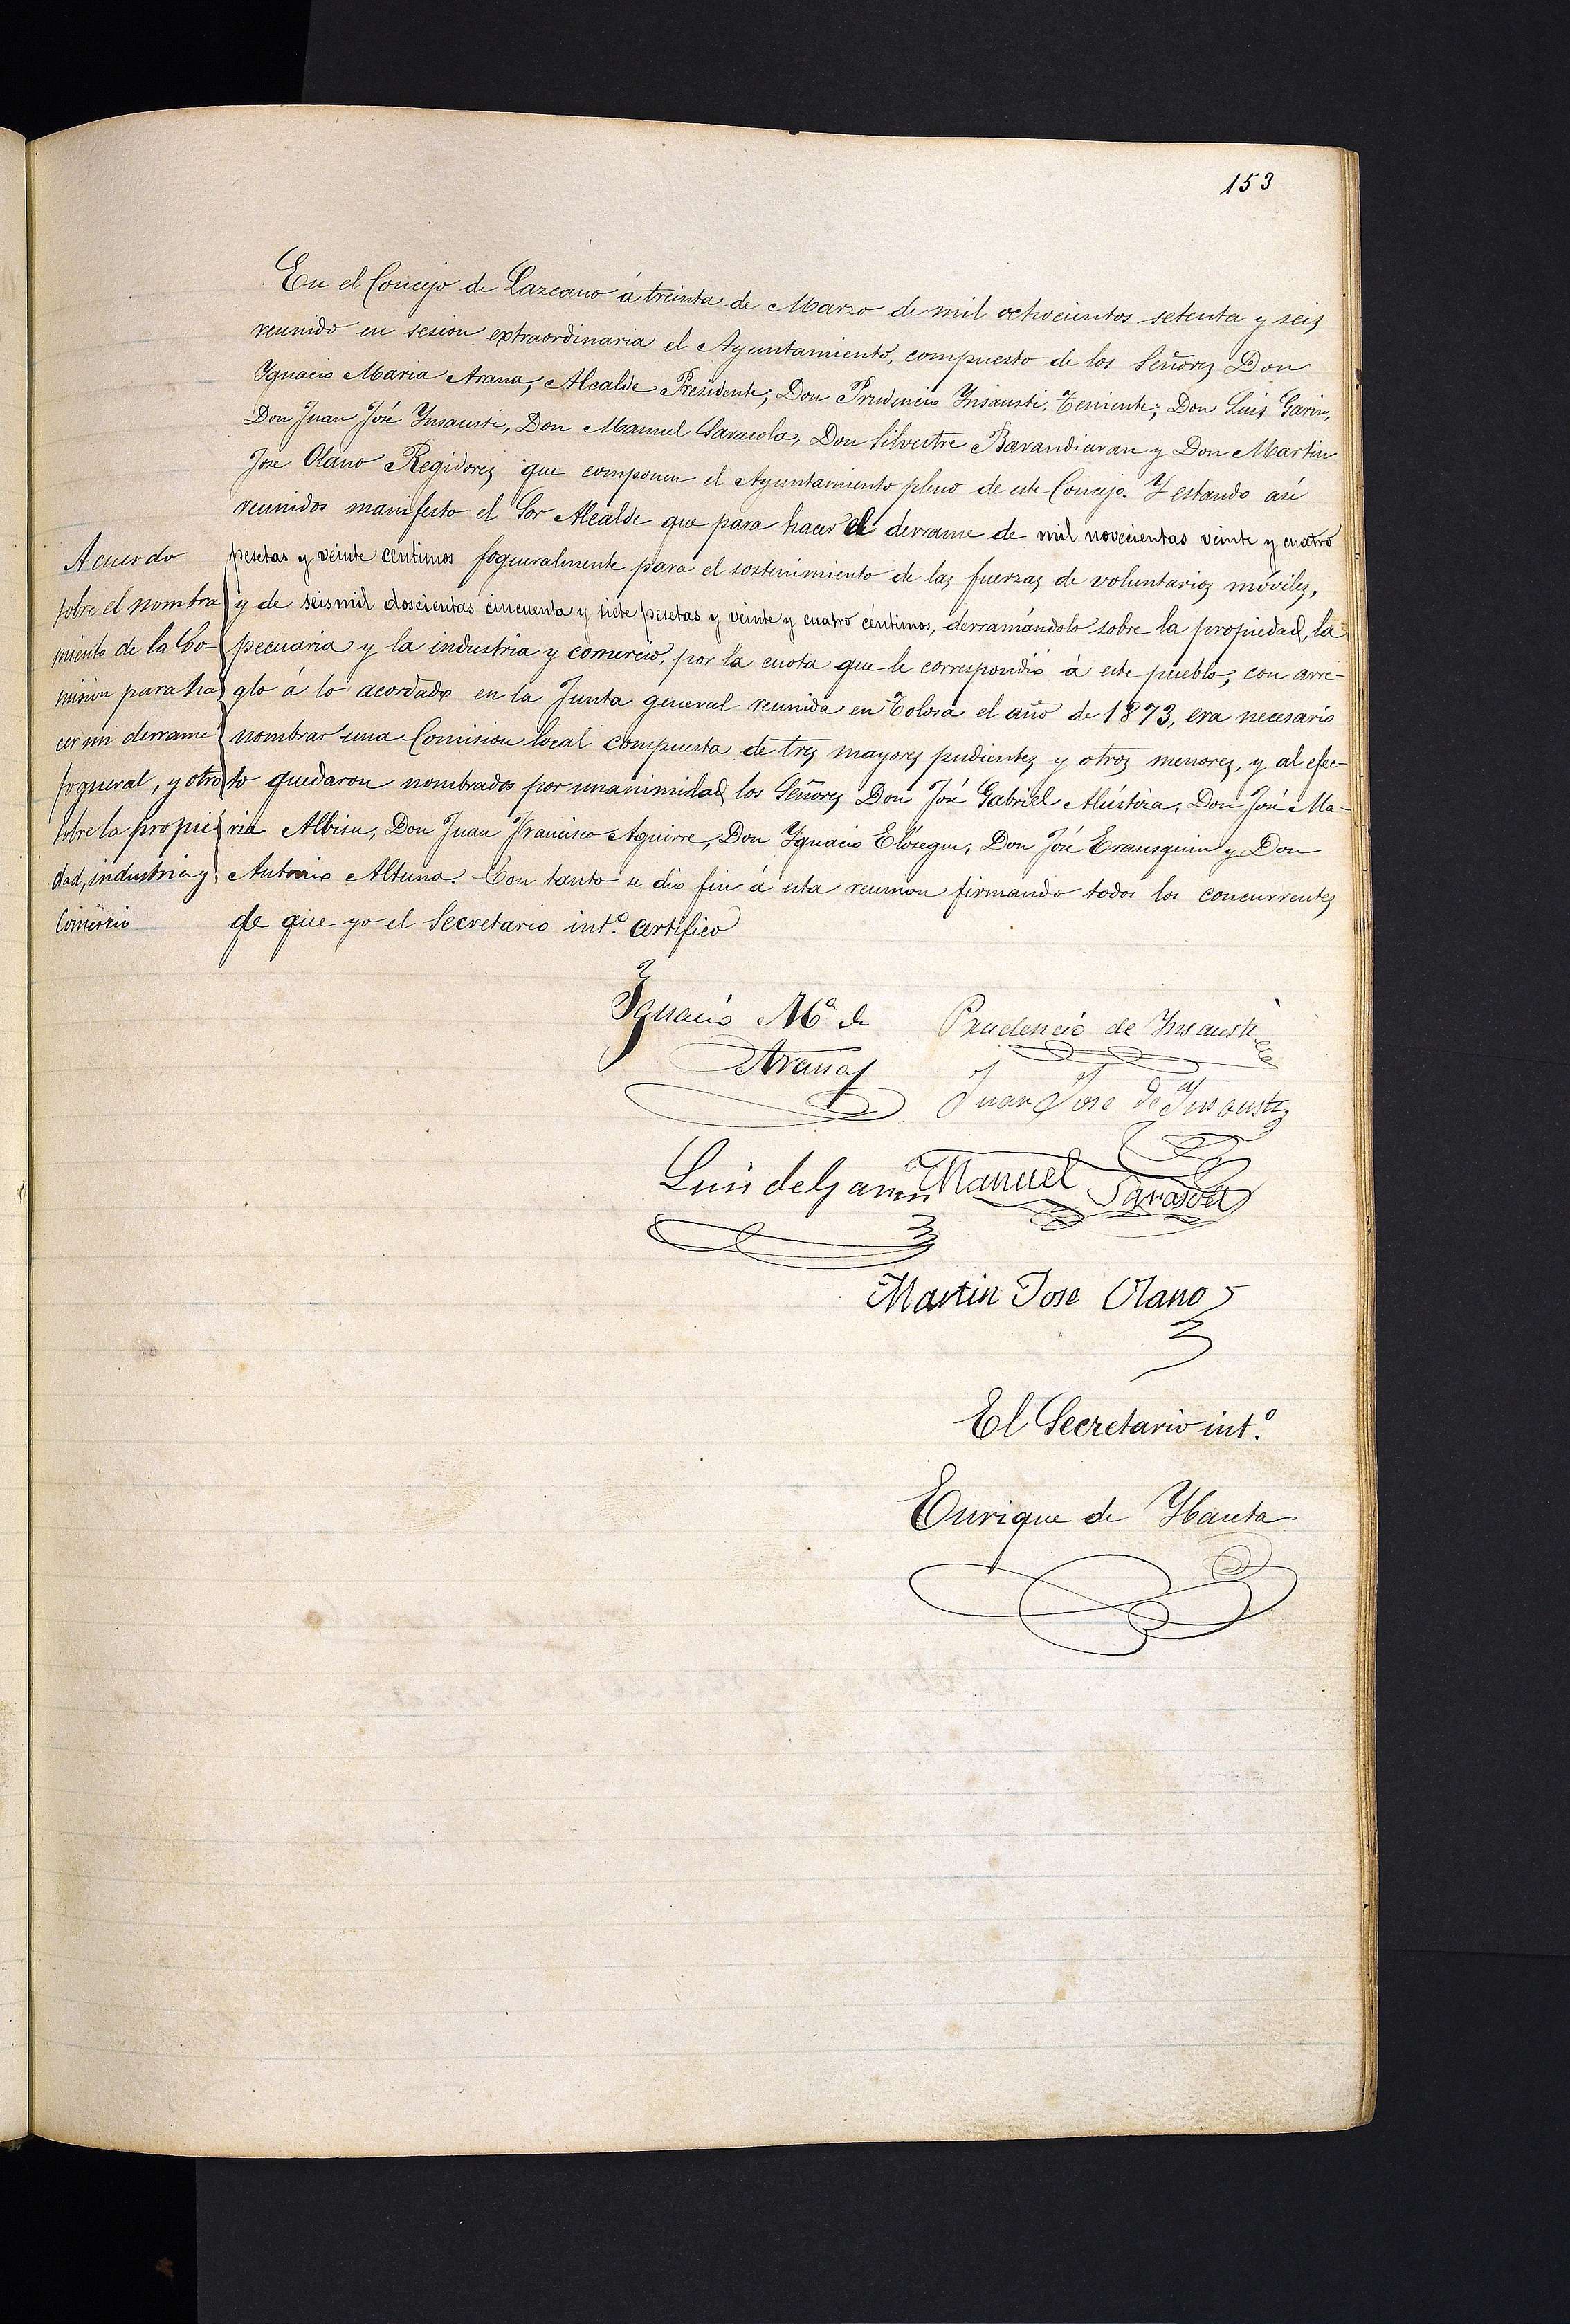 153
En el Concejo de Lazcano á treinta de Marzo de mil ochocientos setenta y seis
reunido en sesion extraordinaria el Ayuntamiento, compuesto de los Señores Don
Ygnacio Maria Arana, Alcalde Presidente; Don Prudencio Ynsausti, Teniente; Don Luis Garin,
Don Juan José Ynsausti, Don Manuel Sarasola, Don Silvestre Barandiaran y Don Martin
Jose Olano Regidores que componen el Ayuntamiento pleno de este Concejo. Y estando asi
reunidos manifesto el Sor Alcalde que para hacer el derrame de mil novecientas veinte y cuatro
pesetas y veinte centimos fogueralmente para el sostenimiento de las fuerzas de voluntarios móviles,
y de seismil doscientas cincuenta y siete pesetas y veinte y cuatro céntimos, derramándolo sobre la propiedad, la
pecuaria y la industria y comercio, por la cuota que le correspondió á este pueblo, con arre-
glo á lo acordado en la Junta general reunida en Tolosa el año de 1873, era necesario
nombrar una Comision local compuesta de tres mayores pudientes y otros menores, y al efec-
to quedaron nombrados por unanimidad los Señores Don José Gabriel Alústiza, Don José Ma-
ria Albisu, Don Juan Francisco Aguirre, Don Ygnacio Elósegui, Don José Erausquin y Don
Antonio Altuna. Con tanto se dio fin á esta reunion firmando todos los concurrentes
de que yo el Secretario int.º certifico
Acuerdo
sobre el nombra
miento de la Co-
mision para ha
cer un derrame
fogueral, y otro
sobre la propie
dad, industria y
Comercio
Ignacio Mª de
Arana
Prudencio de Ynsausti
Juan Jose de Insausti
Luis de Garin
Manuel Sarasola
Martin Jose Olano
El Secretario int.º
Enrique de